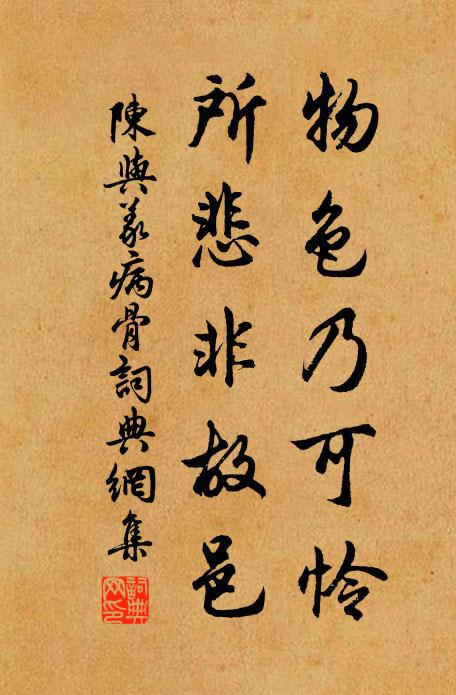 物色乃可怜
所悲非故邑
陳與義病骨詞典網集
詞典
网印